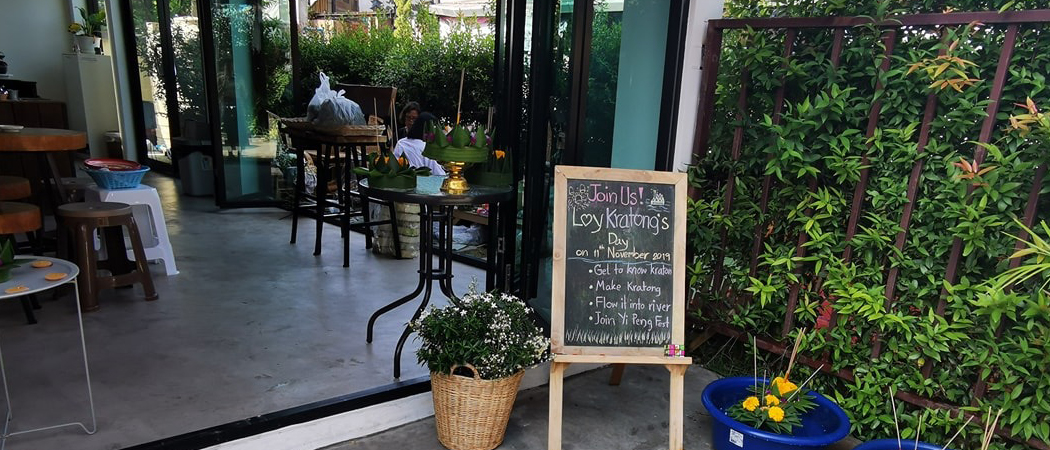 Join Us!
Loy Kratong's
Day
on 11th November 2019
• Get to know kraton
• Make Kratong
• Flow it into river
• Join Yi Peng Fest